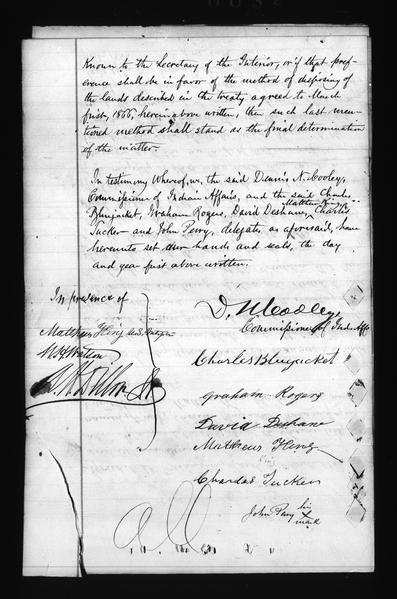 Known to the Secretary of the Interior, or if that pref-
erence shall be in favor of the method of disposing of
the lands described in the treaty agreed to March
first, 1866, hereinabove written, then such last men-
tioned method shall stand as the final determination
of the matter.
In testimony Whereof, we, the said Dennis N. Cooley,
Commissioner of Indian Affairs, and the said Charles
Matthew King
Bluejacket, Graham Rogers, David Deshane, Charles
Tucker and John Perry, delegates as aforesaid, have
hereunto set our hands and seals, the day
and year first above written.
In presence of
D. N. Cooley
Commissioner of Ind. Affs
Matthew King
Charles Bluejacket
Graham Rogers
David Deshane
Matthew King
Charles Tucker
John Perry his
x
mark